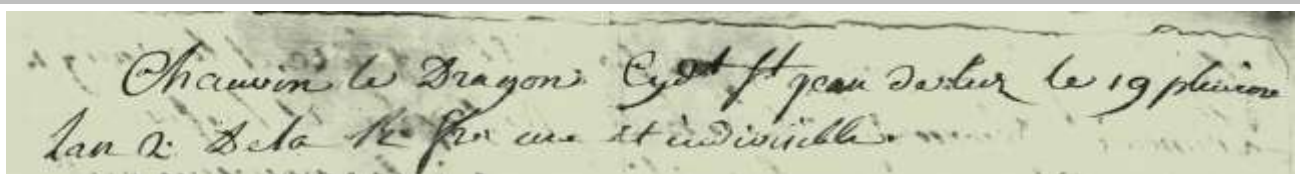 Chauvin le Dragon. Cydt St jean de luz le 19 pluviose
Lan 2e De la Re fse une et indivisible.